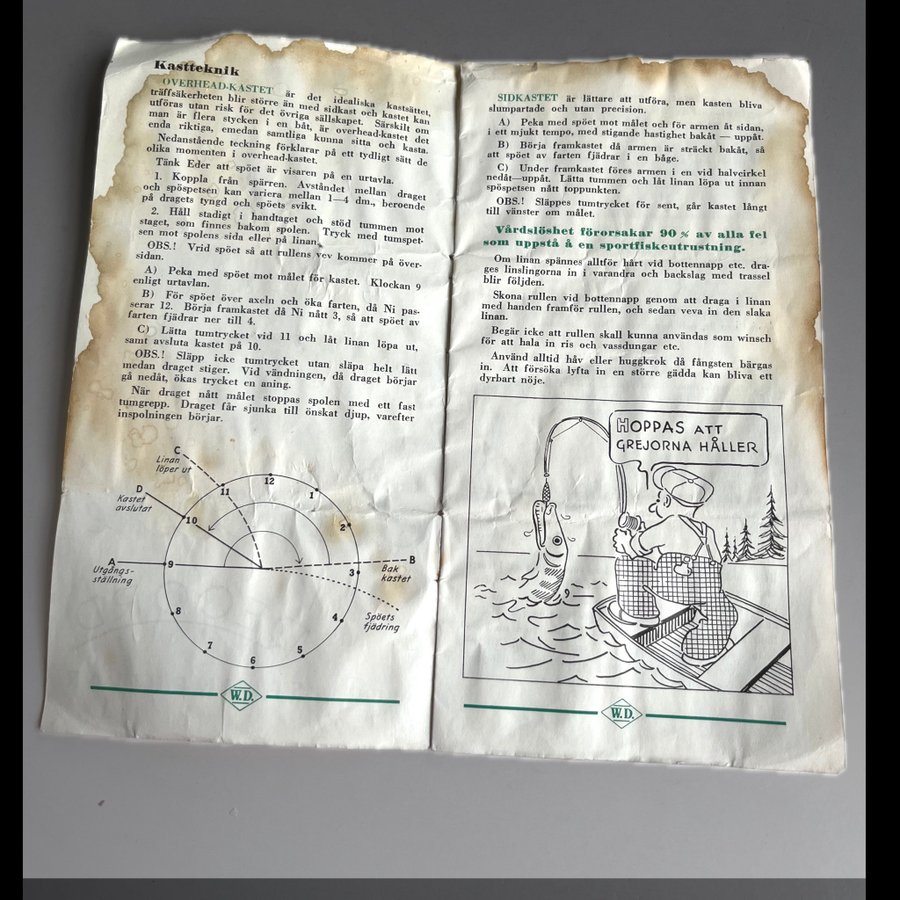 Kastteknik
OVERHEAD-KASTET är det idealiska kastsättet,
träffsäkerheten blir större än med sidkast och kastet kan
utföras utan risk för det övriga sällskapet. Särskilt om
man är flera stycken i en båt, är overhead-kastet det
enda riktiga, emedan samtliga kunna sitta och kasta.
Nedanstående teckning förklarar på ett tydligt sätt de
olika momenten i overhead-kastet.
Tänk Eder att spöet är visaren på en urtavla.
1. Koppla från spärren. Avståndet mellan draget
och spöspetsen kan variera mellan 1—4 dm., beroende
på dragets tyngd och spöets svikt.
2. Håll stadigt i handtaget och stöd tummen mot
staget, som finnes bakom spolen. Tryck med tumspet-
sen mot spolens sida eller på linan.
OBS.! Vrid spöet så att rullens vev kommer på över-
sidan.
A) Peka med spöet mot målet för kastet. Klockan 9
enligt urtavlan.
B) För spöet över axeln och öka farten, då Ni pas-
serar 12. Börja framkastet då Ni nått 3, så att spöet av
farten fjädrar ner till 4.
C) Lätta tumtrycket vid 11 och låt linan löpa ut,
samt avsluta kastet på 10.
OBS.! Släpp icke tumtrycket utan släpa helt lätt
medan draget stiger. Vid vändningen, då draget börjar
gå nedåt, ökas trycket en aning.
När draget nått målet stoppas spolen med ett fast
tumgrepp. Draget får sjunka till önskat djup, varefter
inspolningen börjar.
C
Linan
löper ut
D
Kastet
avslutat
A
Utgångs-
ställning
B
Bak
kastet
Spöets
fjädring
12
1
2
3
4
5
6
7
8
9
10
11
W.D.
SIDKASTET är lättare att utföra, men kasten bliva
slumpartade och utan precision.
A) Peka med spöet mot målet och för armen åt sidan,
i ett mjukt tempo, med stigande hastighet bakåt — uppåt.
B) Börja framkastet då armen är sträckt bakåt, så
att spöet av farten fjädrar i en båge.
C) Under framkastet föres armen i en vid halvcirkel
nedåt—uppåt. Lätta tummen och låt linan löpa ut innan
spöspetsen nått toppunkten.
OBS.! Släppes tumtrycket för sent, går kastet långt
till vänster om målet.
Vårdslöshet förorsakar 90 % av alla fel
som uppstå å en sportfiskeutrustning.
Om linan spännes alltför hårt vid bottennapp etc. dra-
ges linslingorna in i varandra och backslag med trassel
blir följden.
Skona rullen vid bottennapp genom att draga i linan
med handen framför rullen, och sedan veva in den slaka
linan.
Begär icke att rullen skall kunna användas som winsch
för att hala in ris och vassdungar etc.
Använd alltid håv eller huggkrok då fångsten bärgas
in. Att försöka lyfta in en större gädda kan bliva ett
dyrbart nöje.
HOPPAS ATT
GREJORNA HÅLLER
W.D.